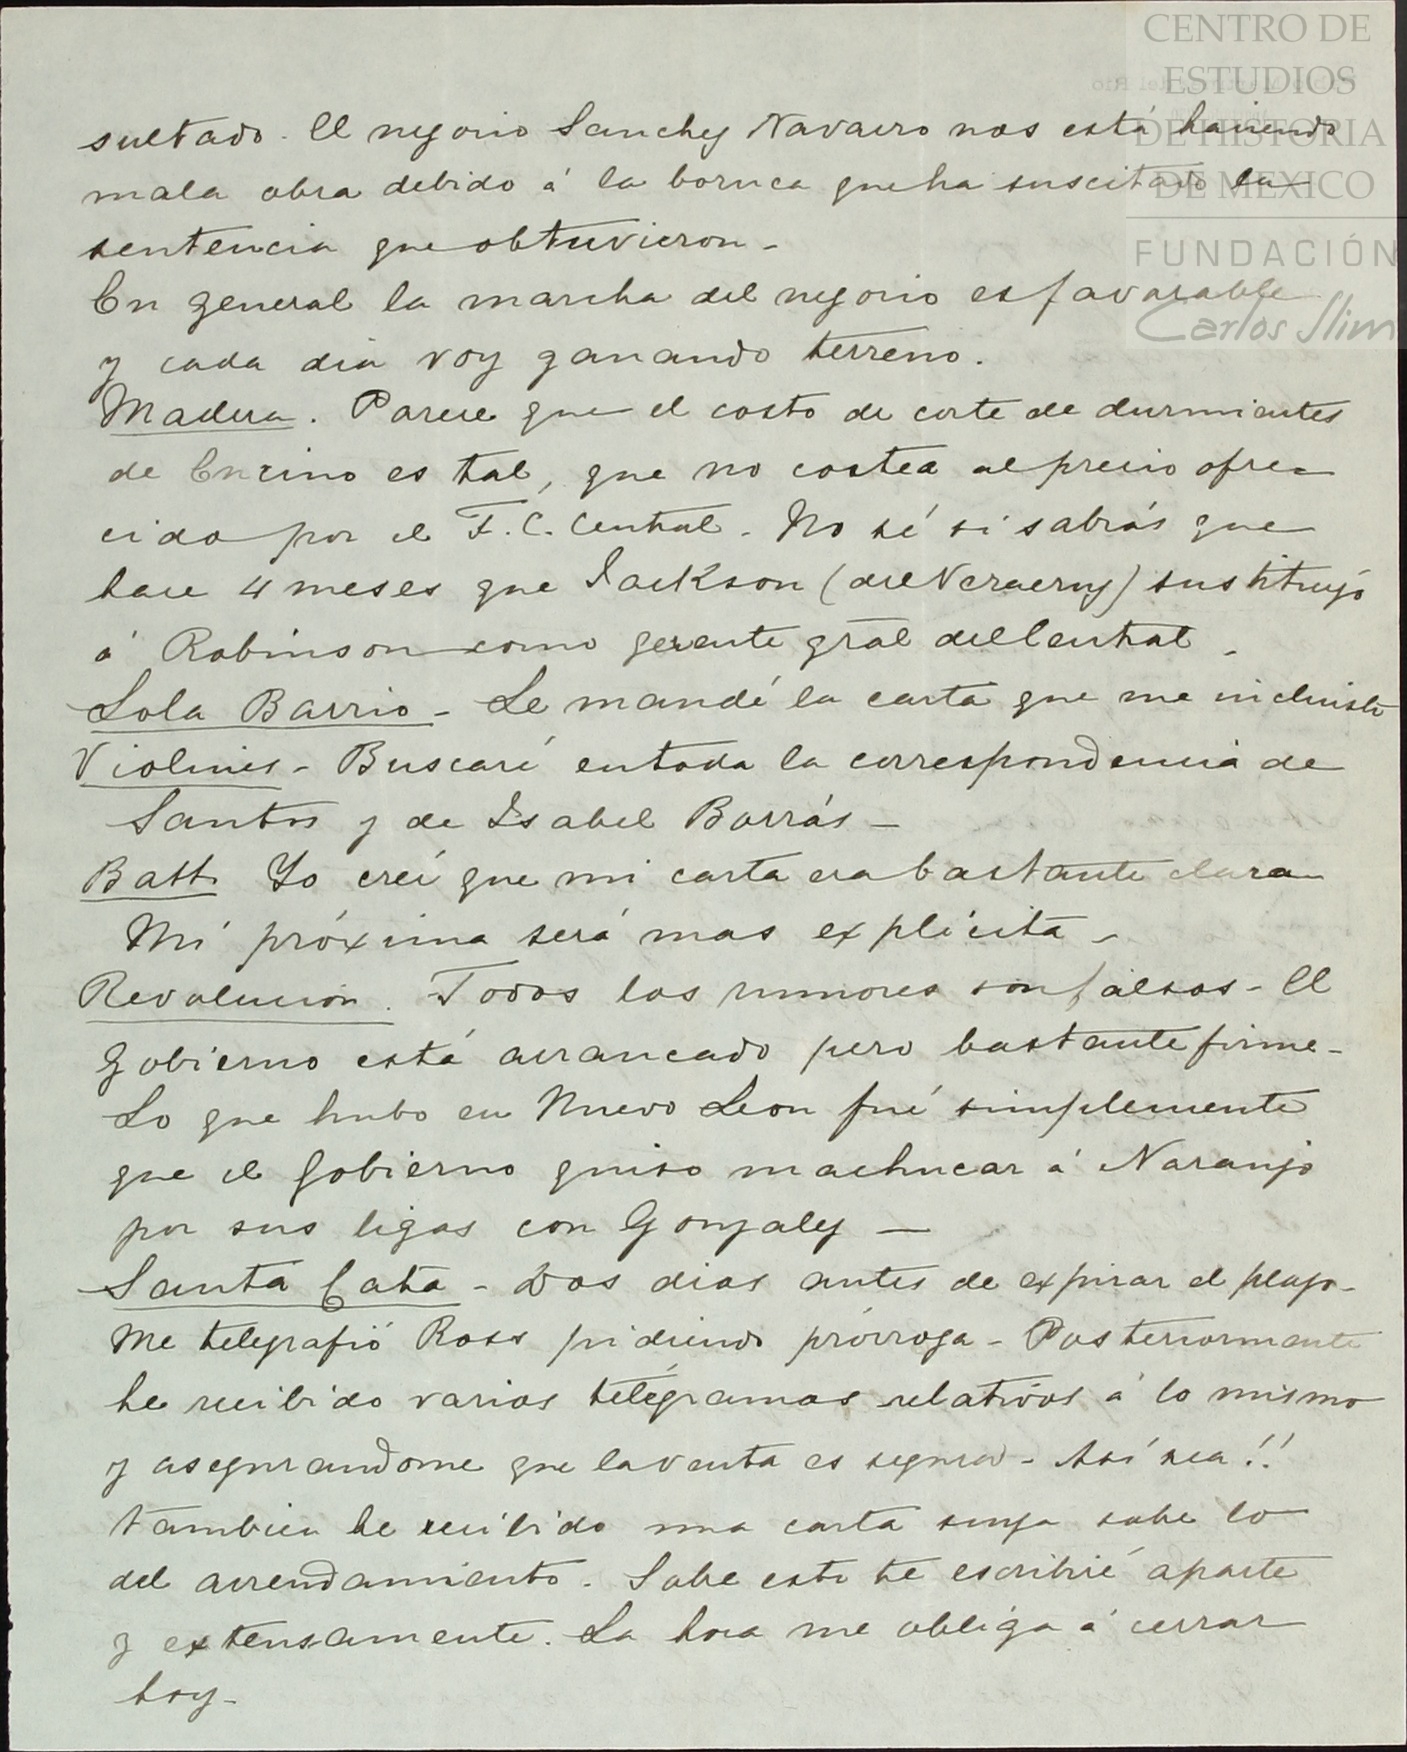 CENTRO DE
ESTUDIOS
DE HISTORIA
DE MEXICO
FUNDACIÓN
Carlos Slim
sultado. El negocio Sanchez Navarro nos está haciendo
mala obra debido á la boruca que ha suscitado la
sentencia que obtuvieron -
En general la marcha del negocio es favorable
y cada dia voy ganando terreno.
Madera. Parece que el costo de corte de durmientes
de Encino es tal, que no costea al precio ofre-
cido por el F. C. Central. No sé si sabrás que
hace 4 meses que Jackson (del Veracruz) sustituyó
á Robinson como gerente gral del Central.
Lola Barrio - Le mandé la carta que me incluiste
Violines - Buscaré en toda la correspondencia de
Santos y de Isabel Barrás -
Batt. Yo creí que mi carta era bastante clara
Mi próxima será mas explícita -
Revolucion. Todos los rumores son falsos - El
Gobierno está arrancado pero bastante firme -
Lo que hubo en Nuevo Leon fué simplemente
que el Gobierno quiso machucar á Naranjo
por sus ligas con Gonzalez -
Santa Cata - Dos dias antes de expirar el plazo -
Me telegrafió Ross pidiendo prórroga - Posteriormente
he recibido varios telégramas relativos á lo mismo
y asegurandome que la venta es segura - Así sea!!
tambien he recibido una carta suya sobre lo
del arrendamiento. Sobre esto te escribiré aparte
y extensamente. La hora me obliga á cerrar
hoy -